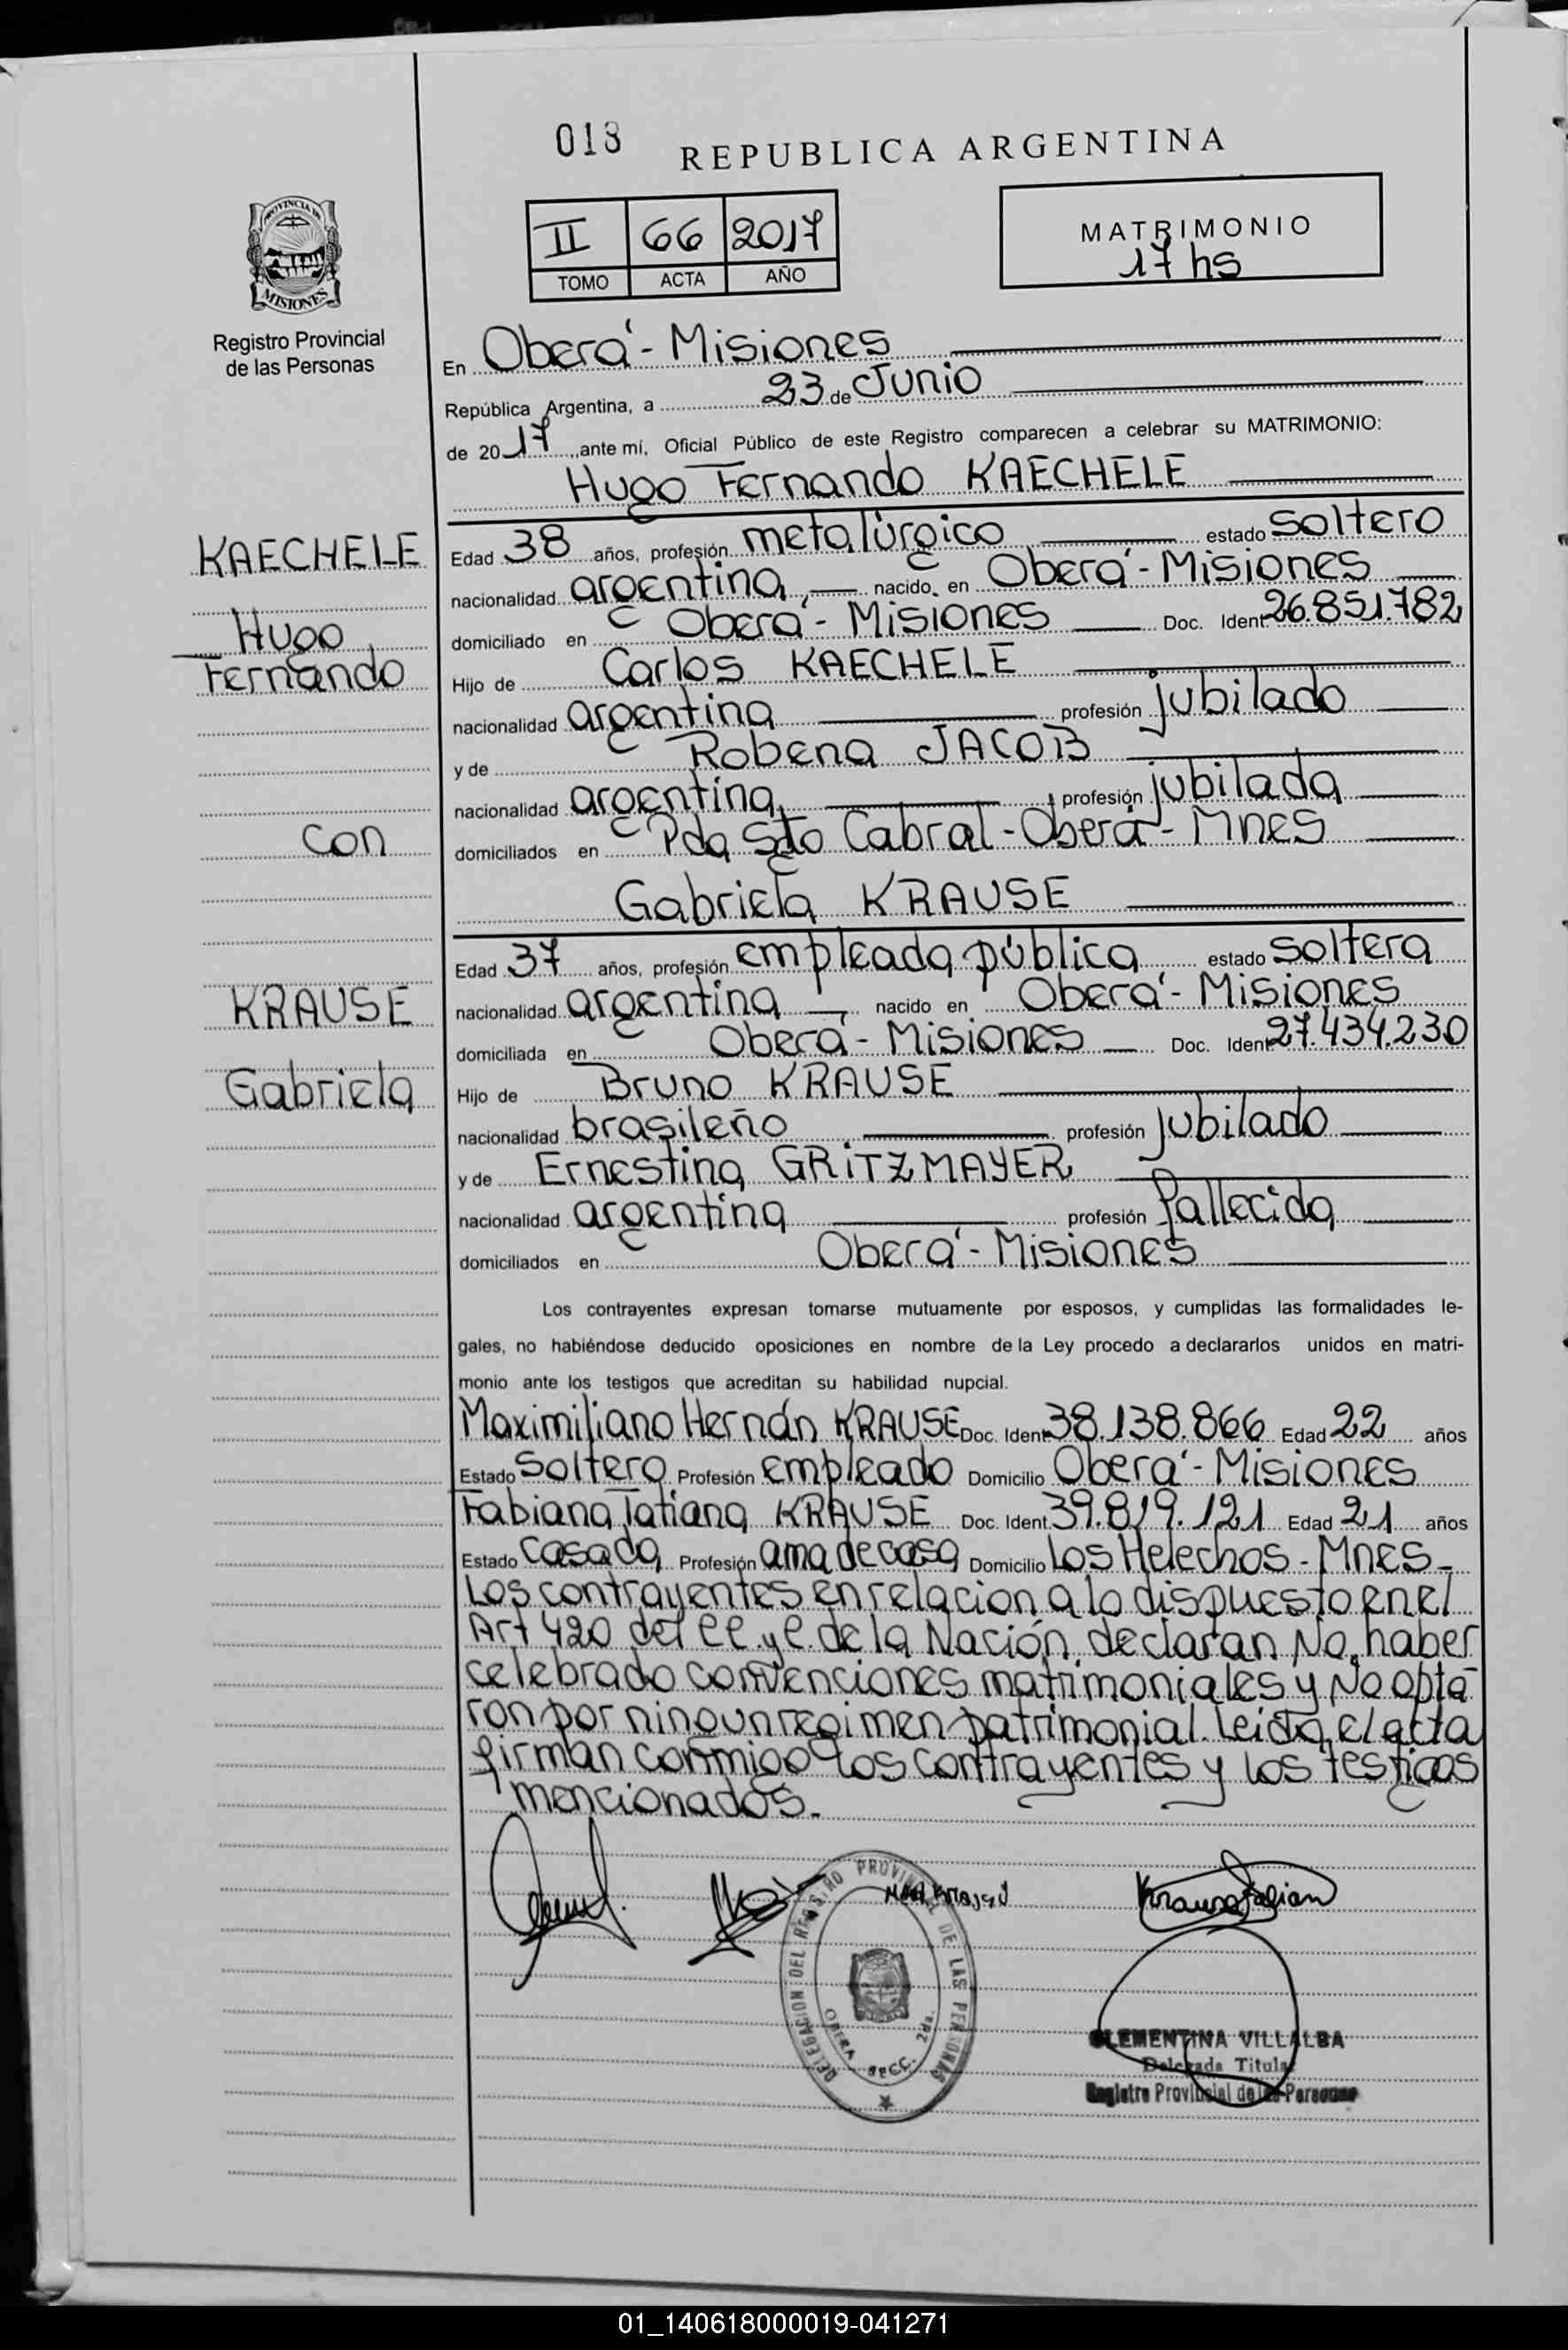 018 REPUBLICA ARGENTINA
II 66 2017
TOMO ACTA AÑO
MATRIMONIO
17 hs
PROVINCIA DE
MISIONES
Registro Provincial
de las Personas
En Oberá - Misiones
República Argentina, a 23 de Junio
de 2017, ante mí, Oficial Público de este Registro comparecen a celebrar su MATRIMONIO:
Hugo Fernando KAECHELE
KAECHELE
Hugo
Fernando
con
KRAUSE
Gabriela
Edad 38 años, profesión metalúrgico estado soltero
nacionalidad argentina nacido en Oberá - Misiones
domiciliado en Oberá - Misiones Doc. Ident 26.851.782
Hijo de Carlos KAECHELE
nacionalidad argentina profesión jubilado
y de Robena JACOB
nacionalidad argentina profesión jubilada
domiciliados en Pda Sgto Cabral - Oberá - Mnes
Gabriela KRAUSE
Edad 37 años, profesión empleada pública estado soltera
nacionalidad argentina nacido en Oberá - Misiones
domiciliada en Oberá - Misiones Doc. Ident 27.434.230
Hijo de Bruno KRAUSE
nacionalidad brasileño profesión jubilado
y de Ernestina GRITZMAYER
nacionalidad argentina profesión fallecida
domiciliados en Oberá - Misiones
Los contrayentes expresan tomarse mutuamente por esposos, y cumplidas las formalidades le-
gales, no habiéndose deducido oposiciones en nombre de la Ley procedo a declararlos unidos en matri-
monio ante los testigos que acreditan su habilidad nupcial.
Maximiliano Hernán KRAUSE Doc. Ident 38.138.866 Edad 22 años
Estado Soltero Profesión empleado Domicilio Oberá - Misiones
Fabiana Tatiana KRAUSE Doc. Ident. 39.819.121 Edad 21 años
Estado casada Profesión ama de casa Domicilio Los Helechos - Mnes -
Los contrayentes en relacion a lo dispuesto en el
Art 420 del CC. y C. de la Nación, declaran No haber
celebrado convenciones matrimoniales y No opta
ron por ningun regimen patrimonial. Leida el acta
firman conmigo los contrayentes y los testigos
mencionados.
Krause Fabian
DELEGACION DEL REGISTRO PROVINCIAL DE LAS PERSONAS
OBERA SECC. 2da.
CLEMENTINA VILLALBA
Delegada Titular
Registro Provincial de las Personas
01_140618000019-041271